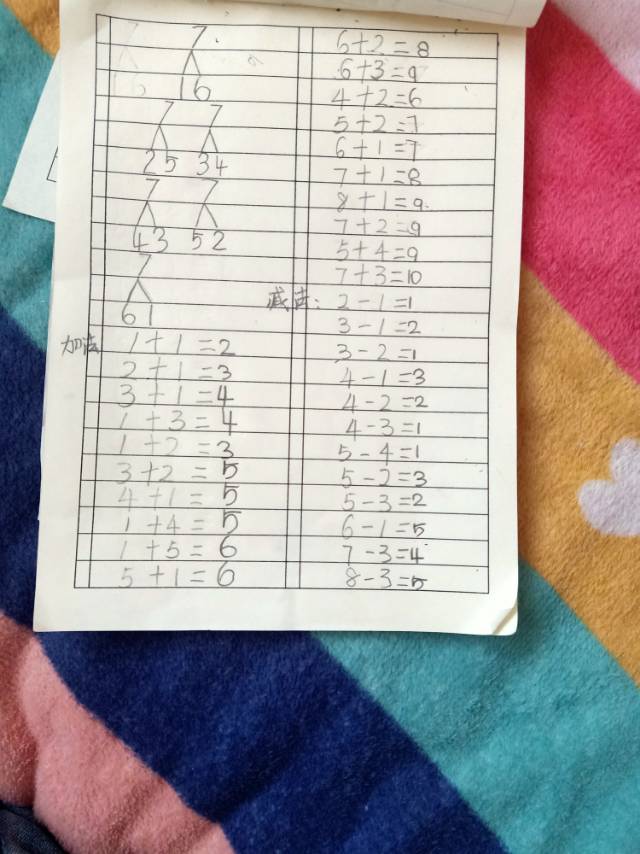 7
1 6
7 7
2 5 3 4
7 7
4 3 5 2
7
6 1
加法
1+1=2
2+1=3
3+1=4
1+3=4
1+2=3
3+2=5
4+1=5
1+4=5
1+5=6
5+1=6
6+2=8
6+3=9
4+2=6
5+2=7
6+1=7
7+1=8
8+1=9
7+2=9
5+4=9
7+3=10
减法:
2-1=1
3-1=2
3-2=1
4-1=3
4-2=2
4-3=1
5-4=1
5-2=3
5-3=2
6-1=5
7-3=4
8-3=5